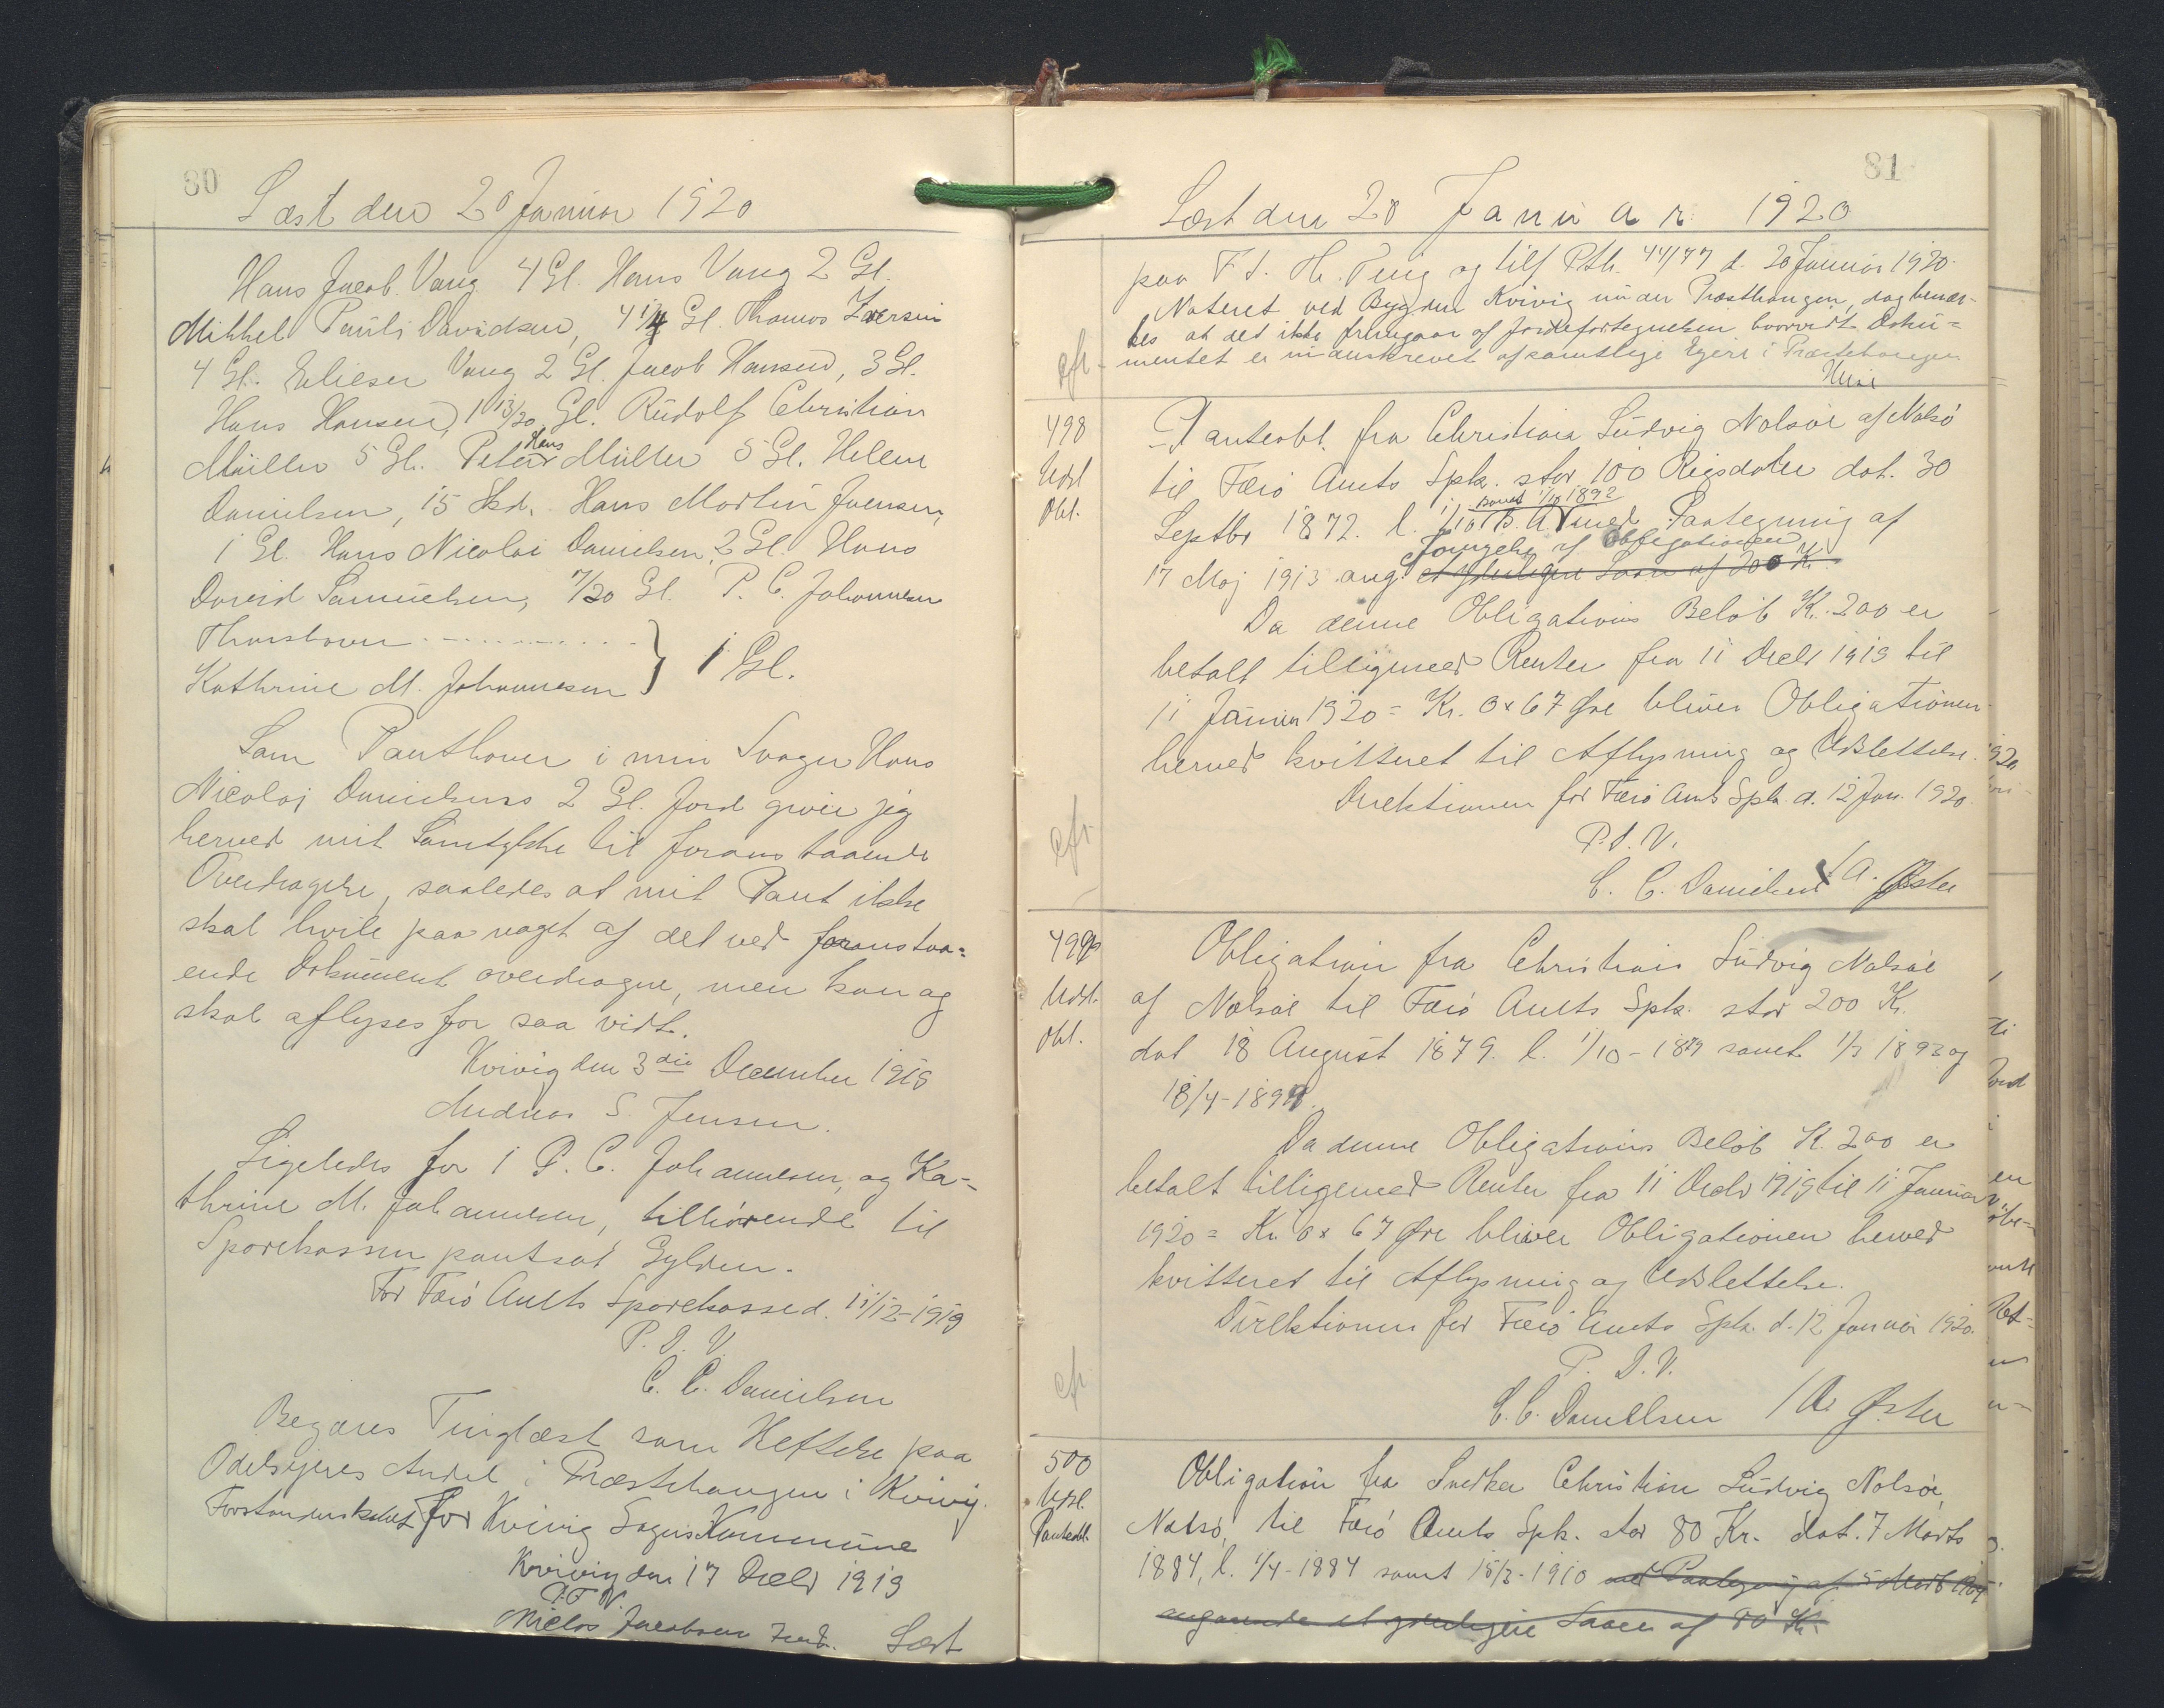 80
Læst den 20 Januar 1920
Hans Jacob Vang 4 Gl. Hans Vang 2 Gl.
Mikkel Pauli Davidsen, 4 1/4 Gl. Thomas Iversen
4 Gl. Elieser Vang 2 Gl. Jacob Hansen, 3 Gl.
Hans Hansen, 1 13/20 Gl. Rudolf Christian
Müller 5 Gl. Peter Hans Müller 5 Gl. Helene
Danielsen, 15 Skd. Hans Martin Joensen,
1 Gl. Hans Nicolai Danielsen, 2 Gl. Hans
David Samuelsen, 7/20 Gl. P. C. Johannesen
Thorshavn } 1 Gl.
Kathrine M. Johannesen
Som Panthaver i min Svoger Hans
Nicolaj Danielsens 2 Gl. Jord giver jeg
herved mit Samtykke til foranstaaende
Overdragelse, saaledes at mit Pant ikke
skal hvile paa noget af det ved foranstaa=
ende Dokument overdragne, men kan og
skal aflyses for saa vidt.
Kvivig den 3die December 1919
Andreas S. Jensen.
Ligeledes for 1 P. C. Johannesen, og Ka-
thrine M. Johannesen, tilhørende til
Sparekassen pantsat Gylden.
For Færø Amts Sparekasse d. 11/12-1919
P. D. V.
C. C. Danielsen
Begæres Tinglæst som Heftelse paa
Odelsejeres Andel i Præstehaugen i Kvivig.
Forstanderskabet for Kvivig Sogns Kommune
Kvivig den 17 Decbr 1919
P. F. V.
Niclas Jacobsen Fmd. Læst
81
Læst den 20 Januar 1920
paa F. S. Th. Ting og tilf Pth. 44/77 d. 20 Januar 1920.
Noteret ved Bygden Kvivig under Præsthaugen, dog bemær-
kes at det ikke fremgaar af Jordefortegnelsen hvorvidt Doku=
mentet er underskrevet af samtlige Ejere i Præstehaugen
cfr.
498
Udsl
Obl.
Panteobl. fra Christian Ludvig Nolsøe af Nolsø
til Færø Amts Spk. stor 100 Rigsdaler dat. 30
samt 1/10 1892
Septbr 1872. l. med Paategning af
Fornyelse af Obligationen
17 Maj 1913 ang. et yderligere Laan af 200 K.
Da denne Obligations Beløb K. 200 er
betalt tilligemed Renter fra 11 Decbr 1919 til
11 Januar 1920 = Kr. 0 x 67 Øre bliver Obligationen
herved kvitteret til Aflysning og Udslettelse.
Direktionen for Færø Amts Spk. d. 12 Jan. 1920.
P. D. V.
cfr.
C. C. Danielsen / A. Øster
499
Udsl.
Obl.
Obligation fra Christian Ludvig Nolsøe
af Nolsøe til Færø Amts Spk. stor 200 K.
dat 18 August 1879. l. 1/10-1879 samt 1/3 1893 og
18/4-1899.
Da denne Obligations Beløb K. 200 er
betalt tilligemed Renter fra 11 Decbr 1919 til 11 Januar
1920 = Kr. 0 x 67 Øre bliver Obligationen herved
kvitteret til Aflysning og Udslettelse.
Direktionen for Færø Amts Spk. d. 12 Januar 1920.
P. D. V.
cfr.
C. C. Danielsen / A. Øster
500
Udsl.
Panteobl.
Obligation fra Snedker Christian Ludvig Nolsøe,
Nolsø, til Færø Amts Spk. stor 80 Kr. dat. 7 Marts
1884, l. 1/4-1884 samt 15/3-1910 med Paategning af 5 Marts
angaaende et yderligere Laan af 80 K.